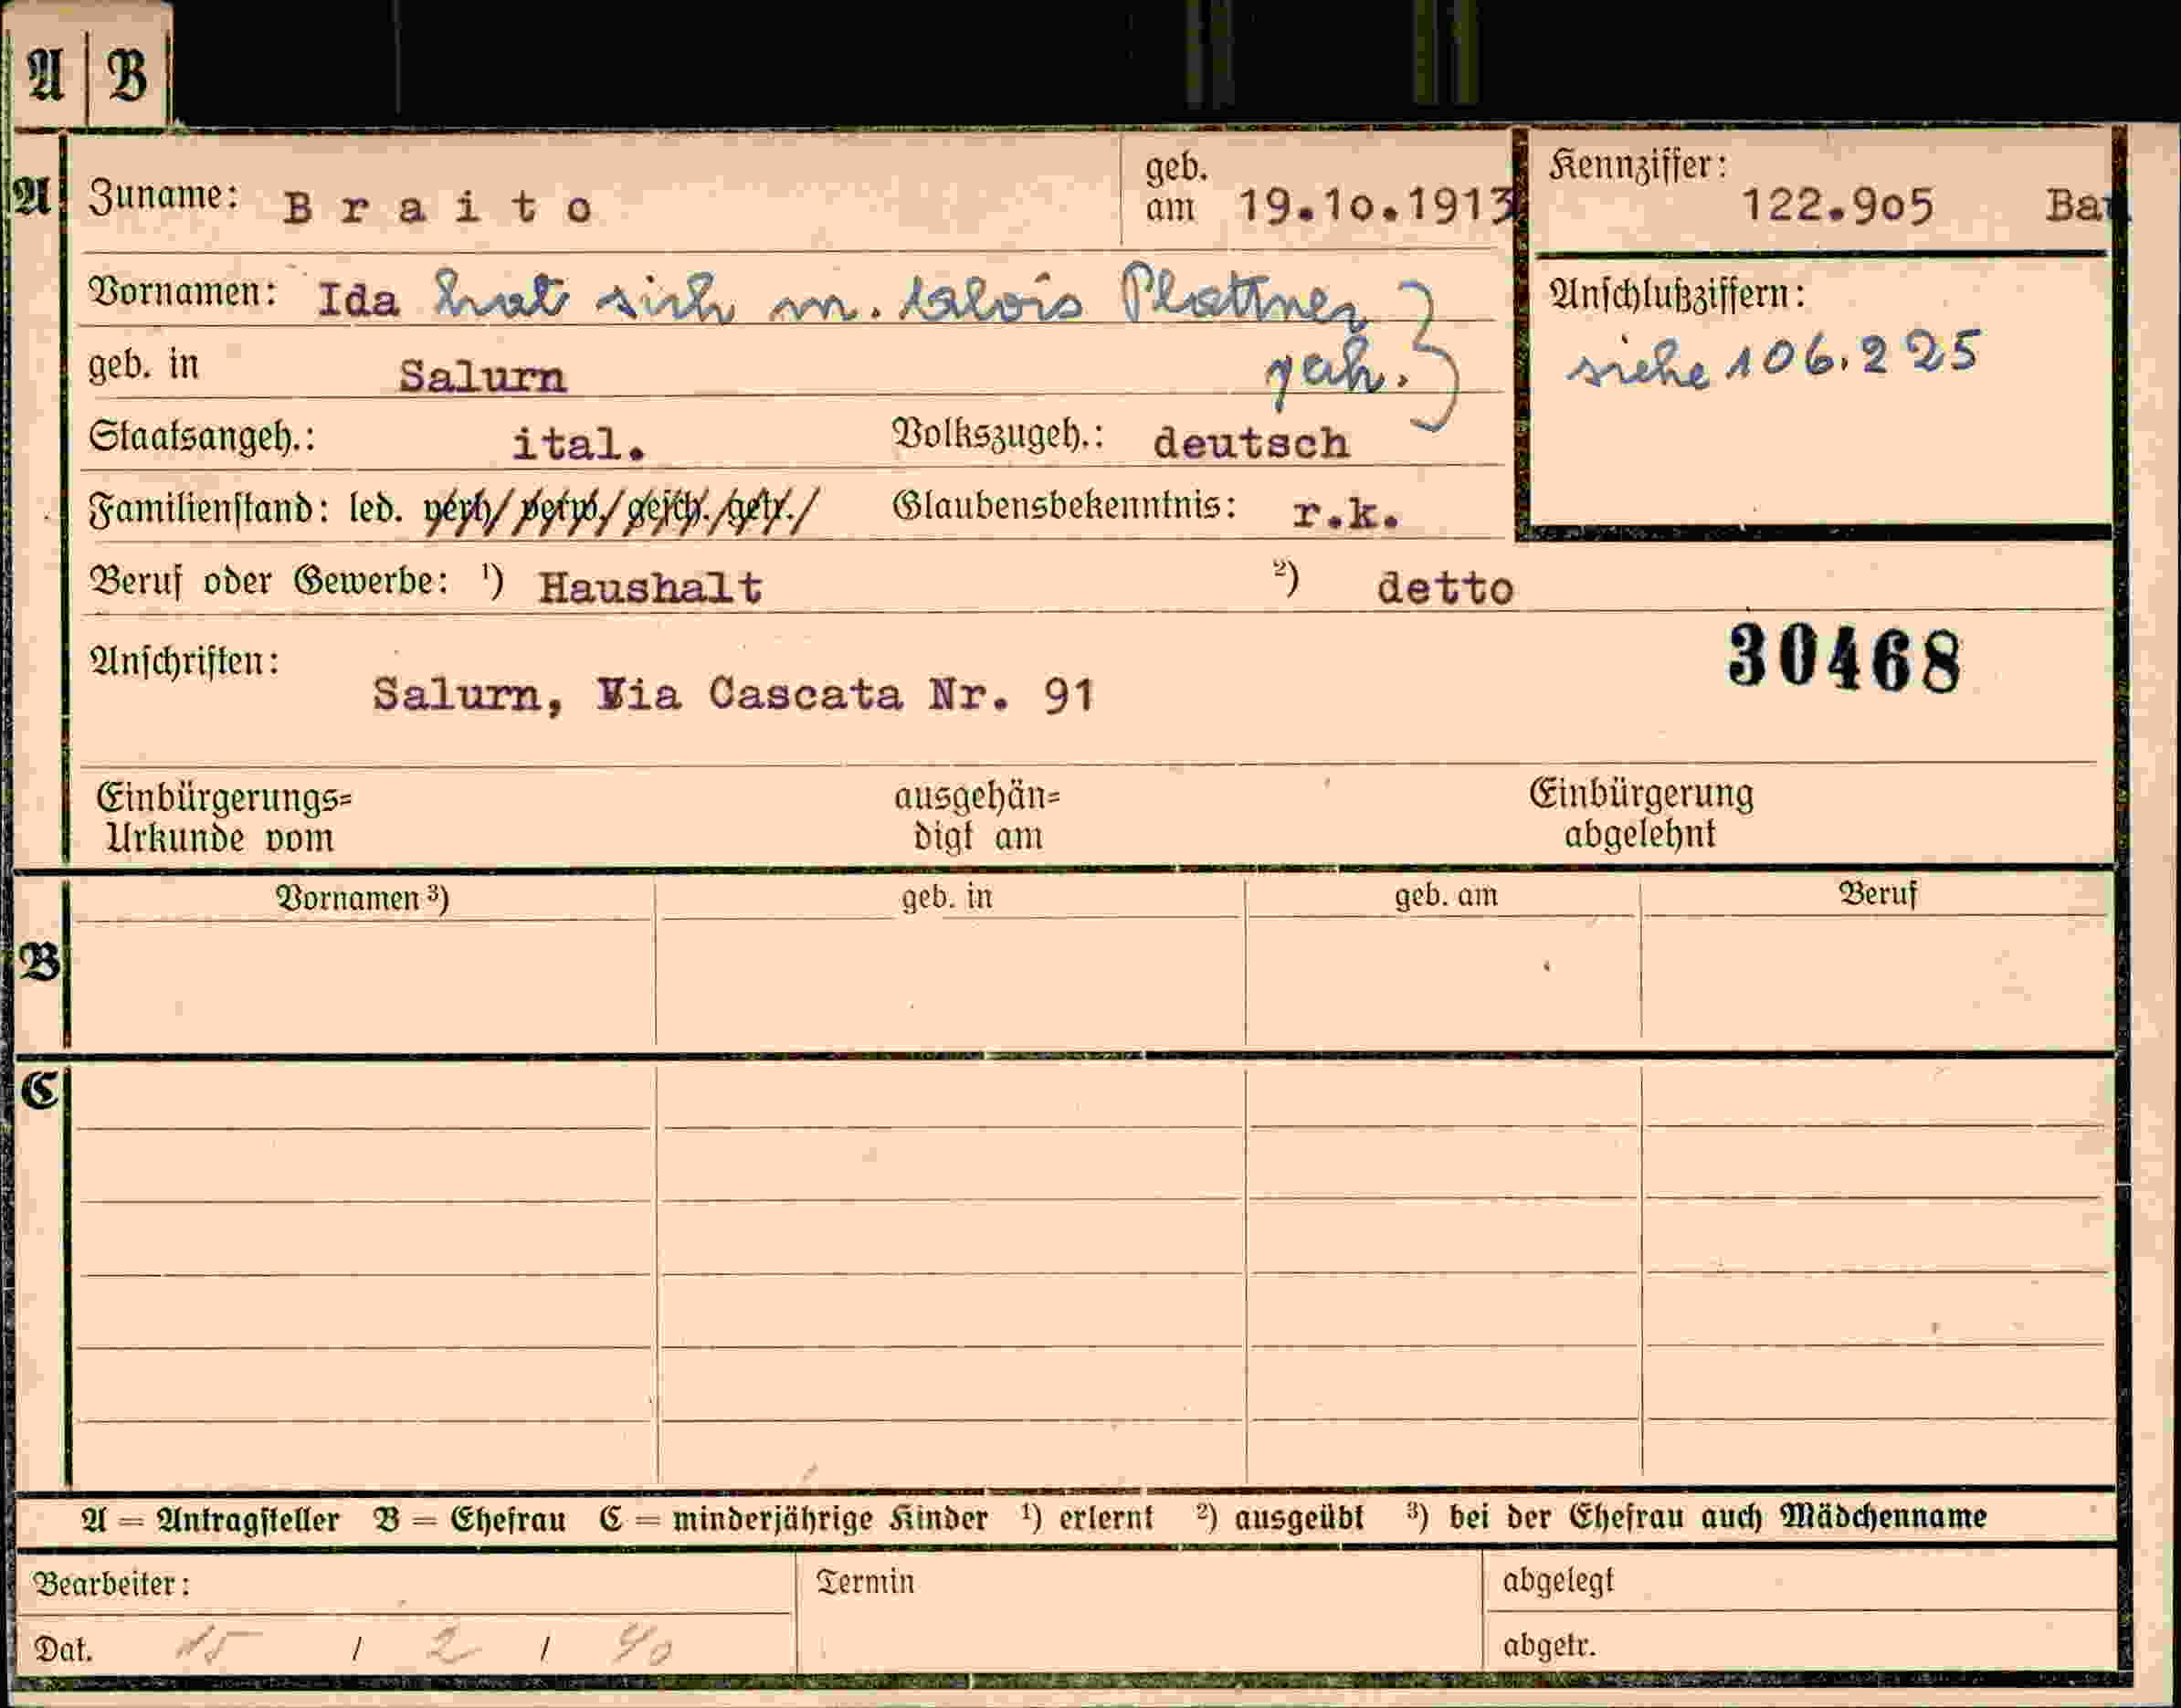 A B
A Zuname: Braito geb. am 19.10.1913 Kennziffer: 122.905
Vornamen: Ida hat sich m. Alois Plattner
geh.
Anschlußziffern:
siehe 106.225
geb. in Salurn
Staatsangeh.: ital. Volkszugeh.: deutsch
Familienstand: led. verh/ verw./ gesch./getr./ Glaubensbekenntnis: r.k.
Beruf oder Gewerbe: ¹) Haushalt ²) detto
Anschriften: 30468
Salurn, Via Cascata Nr. 91
Einbürgerungs= ausgehän= Einbürgerung
Urkunde vom digt am abgelehnt
Vornamen ³) geb. in geb. am Beruf
B
C
A = Antragsteller B = Ehefrau C = minderjährige Kinder ¹) erlernt ²) ausgeübt ³) bei der Ehefrau auch Mädchenname
Bearbeiter: Termin abgelegt
Dat. 15 / 2 / 40 abgetr.